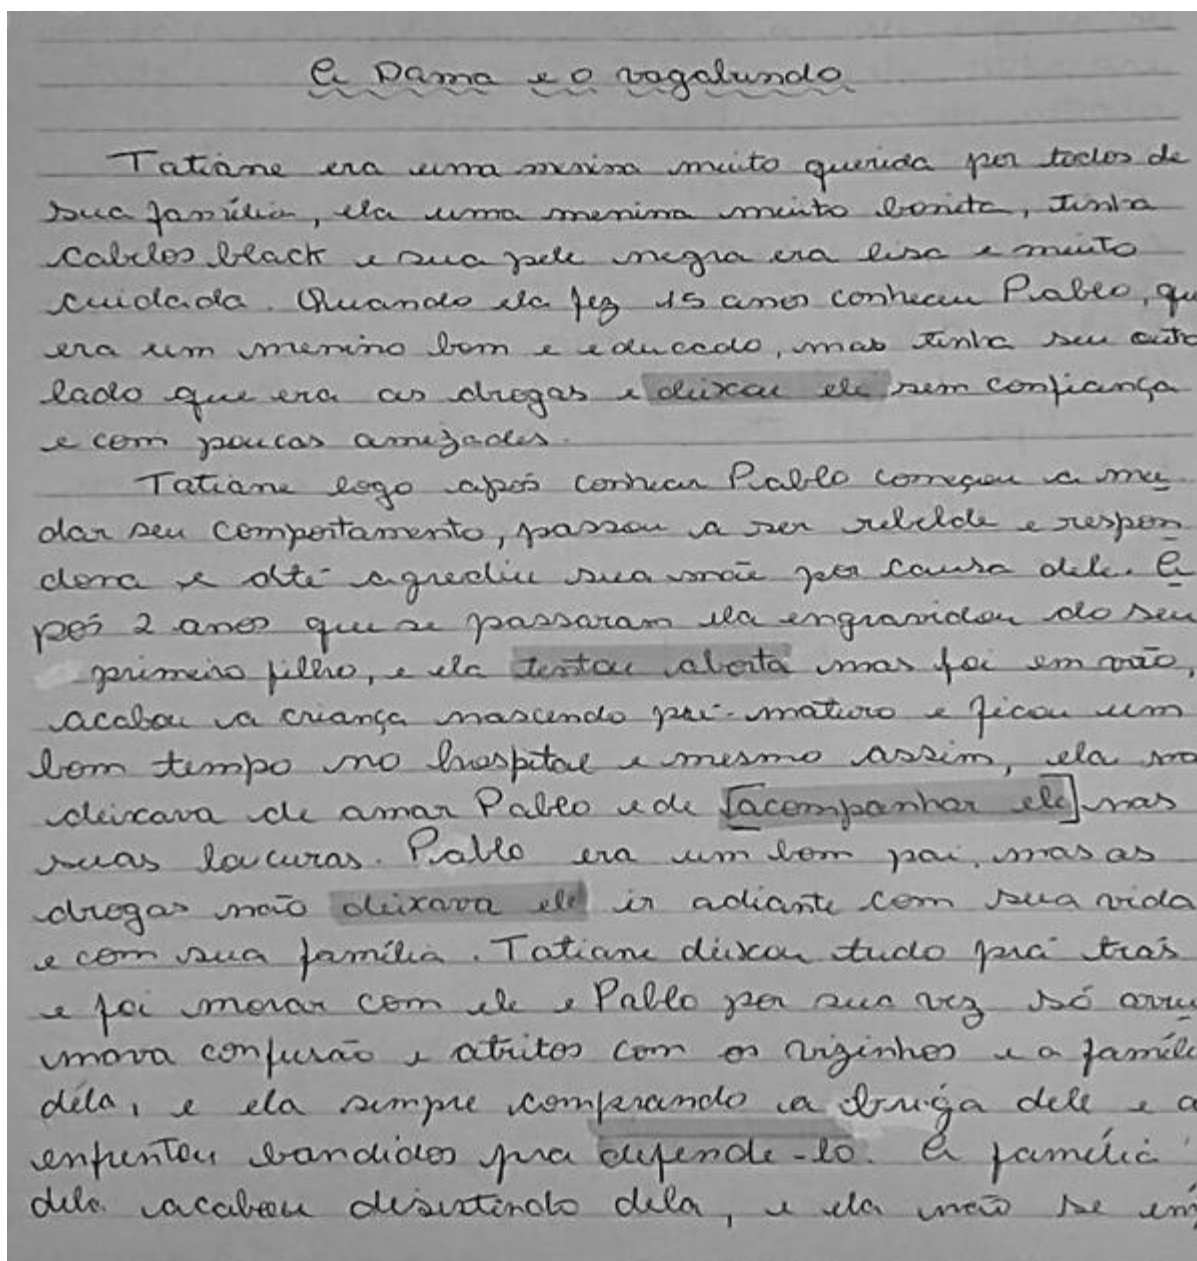 A Dama e o vagalundo
Tatiane era uma menina muito querida por todos de
sua família, ela uma menina muito bonita, tinha
cabelos black e sua pele negra era lisa e muito
cuidada. Quando ela fez 15 anos conheceu Pablo, qu
era um menino bom e educado, mas tinha seu outo
lado que era as drogas e deixou ele sem confiança
e com poucas amizades.
Tatiane logo após conhecer Pablo começou a mu
dar seu comportamento, passou a ser rebelde e respon
dona e até agrediu sua mãe por causa dele. A
pós 2 anos que se passaram ela engravidou do seu
primeiro filho, e ela tentou aborta mas foi em vão,
acabou a criança nascendo pré-maturo e ficou um
bom tempo no hospital e mesmo assim, ela nã
deixava de amar Pablo e de [acompanhar ele] nas
suas loucuras. Pablo era um bom pai, mas as
drogas não deixava ele ir adiante com sua vida
e com sua família. Tatiane deixou tudo prá trás
e foi morar com ele e Pablo por sua vez só arru
mava confusão e atritos com os vizinhos e a famíli
déla, e ela sempre comprando a briga dele e a
enfrentou bandidos pra defende-lo. A família
dela acabou desistindo dela, e ela não se im